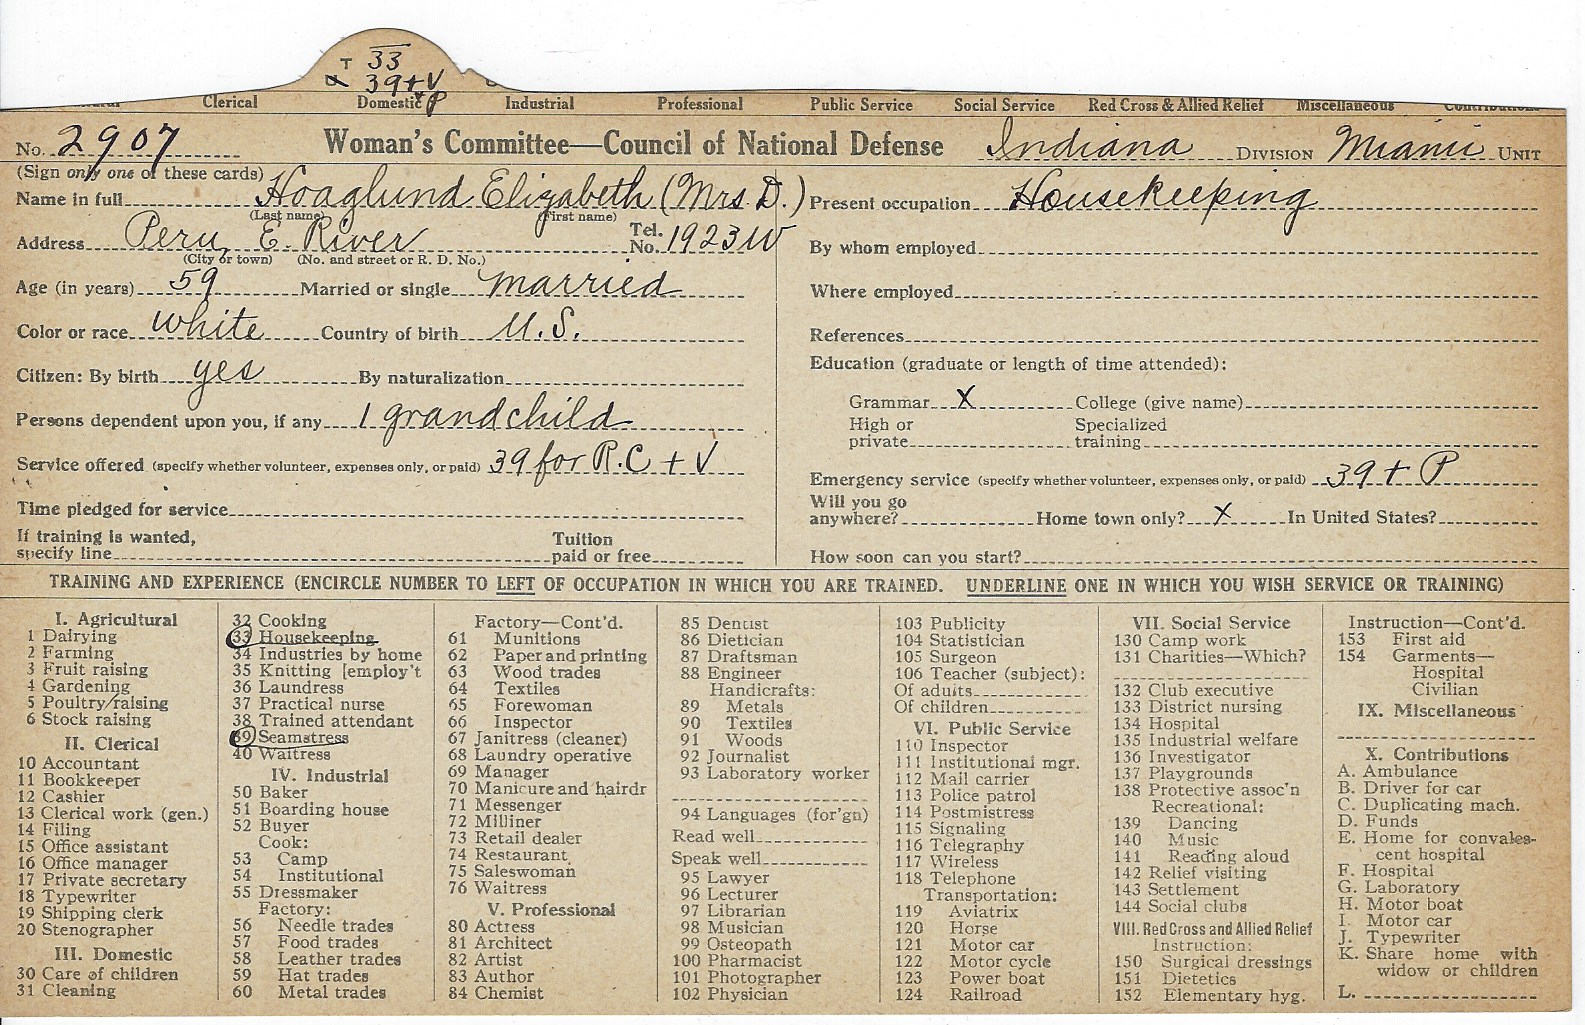 T 33
39 + V
Clerical Domestic P Industrial Professional Public Service Social Service Red Cross & Allied Relief Miscellaneous Contributions
No. 2907 Woman's Committee—Council of National Defense Indiana DIVISION Miami UNIT
(Sign only one of these cards)
Name in full Hoaglund Elizabeth (Mrs. D.)
(Last name) (First name)
Address Peru, E. River Tel. No. 1923W
(City or town) (No. and street or R. D. No.)
Age (in years) 59 Married or single married
Color or race white Country of birth U.S.
Citizen: By birth yes By naturalization
Persons dependent upon you, if any 1 grandchild
Service offered (specify whether volunteer, expenses only, or paid) 39 for R.C + V
Time pledged for service
If training is wanted,
specify line Tuition paid or free
Present occupation Housekeeping
By whom employed
Where employed
References
Education (graduate or length of time attended):
Grammar X College (give name)
High or private Specialized training
Emergency service (specify whether volunteer, expenses only, or paid) 39 + P
Will you go anywhere? Home town only? X In United States?
How soon can you start?
TRAINING AND EXPERIENCE (ENCIRCLE NUMBER TO LEFT OF OCCUPATION IN WHICH YOU ARE TRAINED. UNDERLINE ONE IN WHICH YOU WISH SERVICE OR TRAINING)
I. Agricultural
1 Dairying
2 Farming
3 Fruit raising
4 Gardening
5 Poultry raising
6 Stock raising
II. Clerical
10 Accountant
11 Bookkeeper
12 Cashier
13 Clerical work (gen.)
14 Filing
15 Office assistant
16 Office manager
17 Private secretary
18 Typewriter
19 Shipping clerk
20 Stenographer
III. Domestic
30 Care of children
31 Cleaning
32 Cooking
33 Housekeeping
34 Industries by home
35 Knitting [employ't
36 Laundress
37 Practical nurse
38 Trained attendant
39 Seamstress
40 Waitress
IV. Industrial
50 Baker
51 Boarding house
52 Buyer
Cook:
53 Camp
54 Institutional
55 Dressmaker
Factory:
56 Needle trades
57 Food trades
58 Leather trades
59 Hat trades
60 Metal trades
Factory—Cont'd.
61 Munitions
62 Paper and printing
63 Wood trades
64 Textiles
65 Forewoman
66 Inspector
67 Janitress (cleaner)
68 Laundry operative
69 Manager
70 Manicure and hairdr
71 Messenger
72 Milliner
73 Retail dealer
74 Restaurant
75 Saleswoman
76 Waitress
V. Professional
80 Actress
81 Architect
82 Artist
83 Author
84 Chemist
85 Dentist
86 Dietician
87 Draftsman
88 Engineer
Handicrafts:
89 Metals
90 Textiles
91 Woods
92 Journalist
93 Laboratory worker
94 Languages (for'gn)
Read well
Speak well
95 Lawyer
96 Lecturer
97 Librarian
98 Musician
99 Osteopath
100 Pharmacist
101 Photographer
102 Physician
103 Publicity
104 Statistician
105 Surgeon
106 Teacher (subject):
Of adults
Of children
VI. Public Service
110 Inspector
111 Institutional mgr.
112 Mail carrier
113 Police patrol
114 Postmistress
115 Signaling
116 Telegraphy
117 Wireless
118 Telephone
Transportation:
119 Aviatrix
120 Horse
121 Motor car
122 Motor cycle
123 Power boat
124 Railroad
VII. Social Service
130 Camp work
131 Charities—Which?
132 Club executive
133 District nursing
134 Hospital
135 Industrial welfare
136 Investigator
137 Playgrounds
138 Protective assoc'n
Recreational:
139 Dancing
140 Music
141 Reading aloud
142 Relief visiting
143 Settlement
144 Social clubs
VIII. Red Cross and Allied Relief
Instruction:
150 Surgical dressings
151 Dietetics
152 Elementary hyg.
Instruction—Cont'd.
153 First aid
154 Garments—
Hospital
Civilian
IX. Miscellaneous
X. Contributions
A. Ambulance
B. Driver for car
C. Duplicating mach.
D. Funds
E. Home for convales-
cent hospital
F. Hospital
G. Laboratory
H. Motor boat
I. Motor car
J. Typewriter
K. Share home with
widow or children
L.